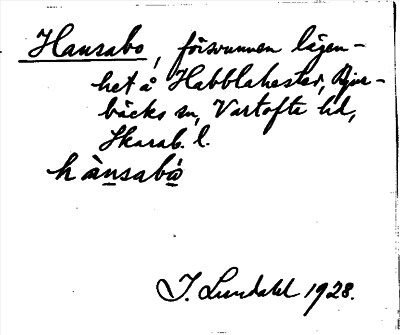 Hansabo, försvunnen lägen-
het å Habblahester, Bjur-
bäcks sn, Vartofta hd,
Skarab. l.
hànsabò
I. Lundahl 1928.